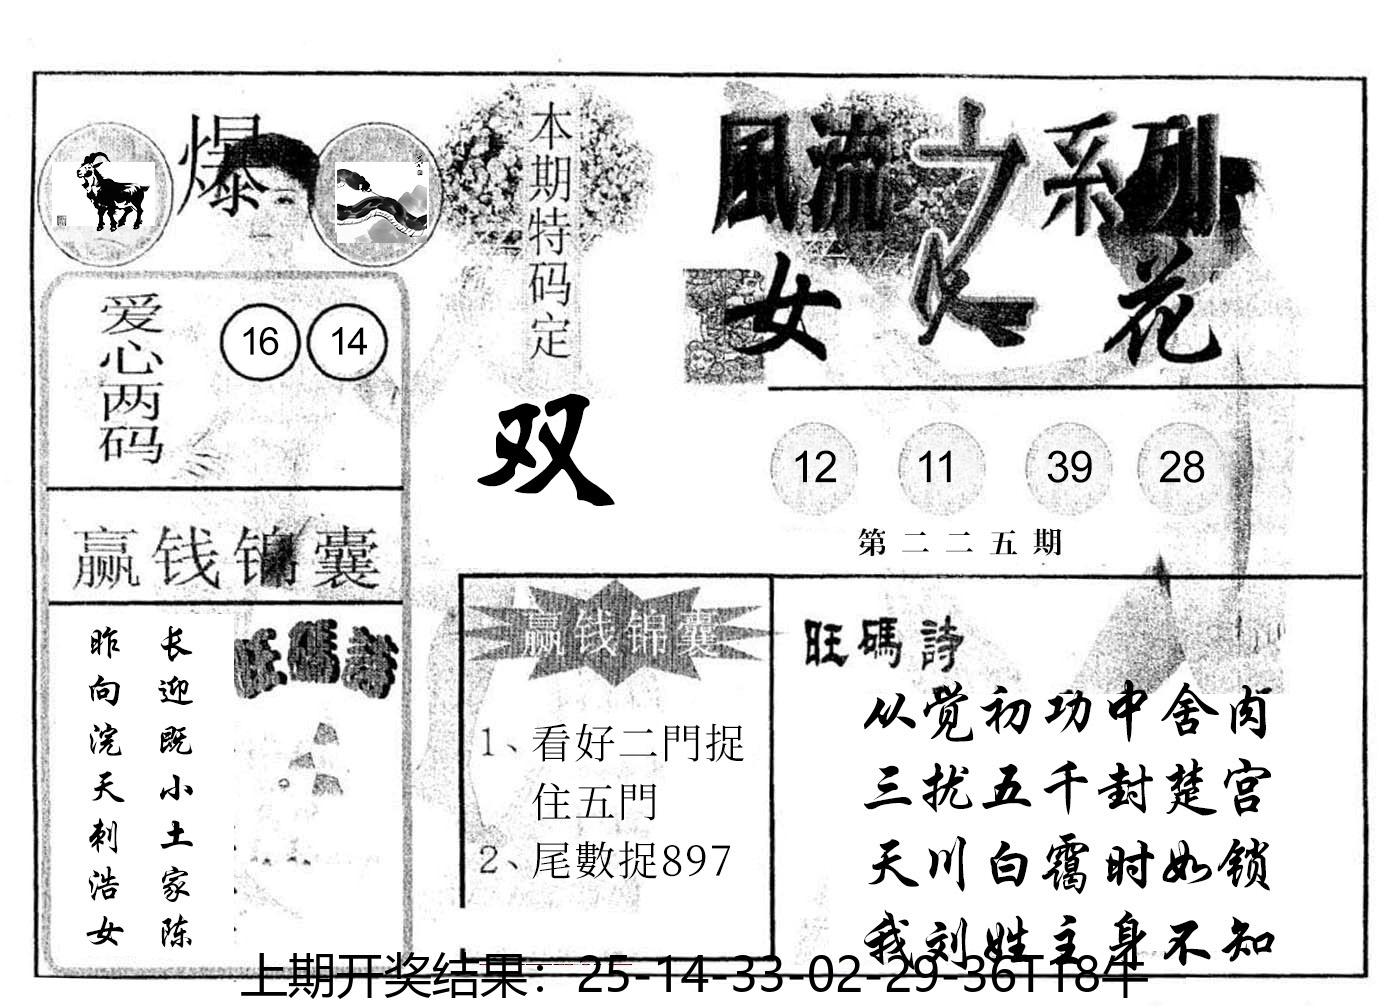 爆
本期特码定
双
風流之系列
女人花
爱心两码
16 14
12 11 39 28
第二二五期
赢钱锦囊
长迎既小土家陈
昨向浣天刺浩女
旺碼詩
赢钱锦囊
1、看好二門捉
住五門
2、尾數捉897
旺碼詩
从觉初功中舍肉
三扰五千封楚宫
天川白霭时如锁
我刘姓主身不知
上期开奖结果：25-14-33-02-29-36T18牛